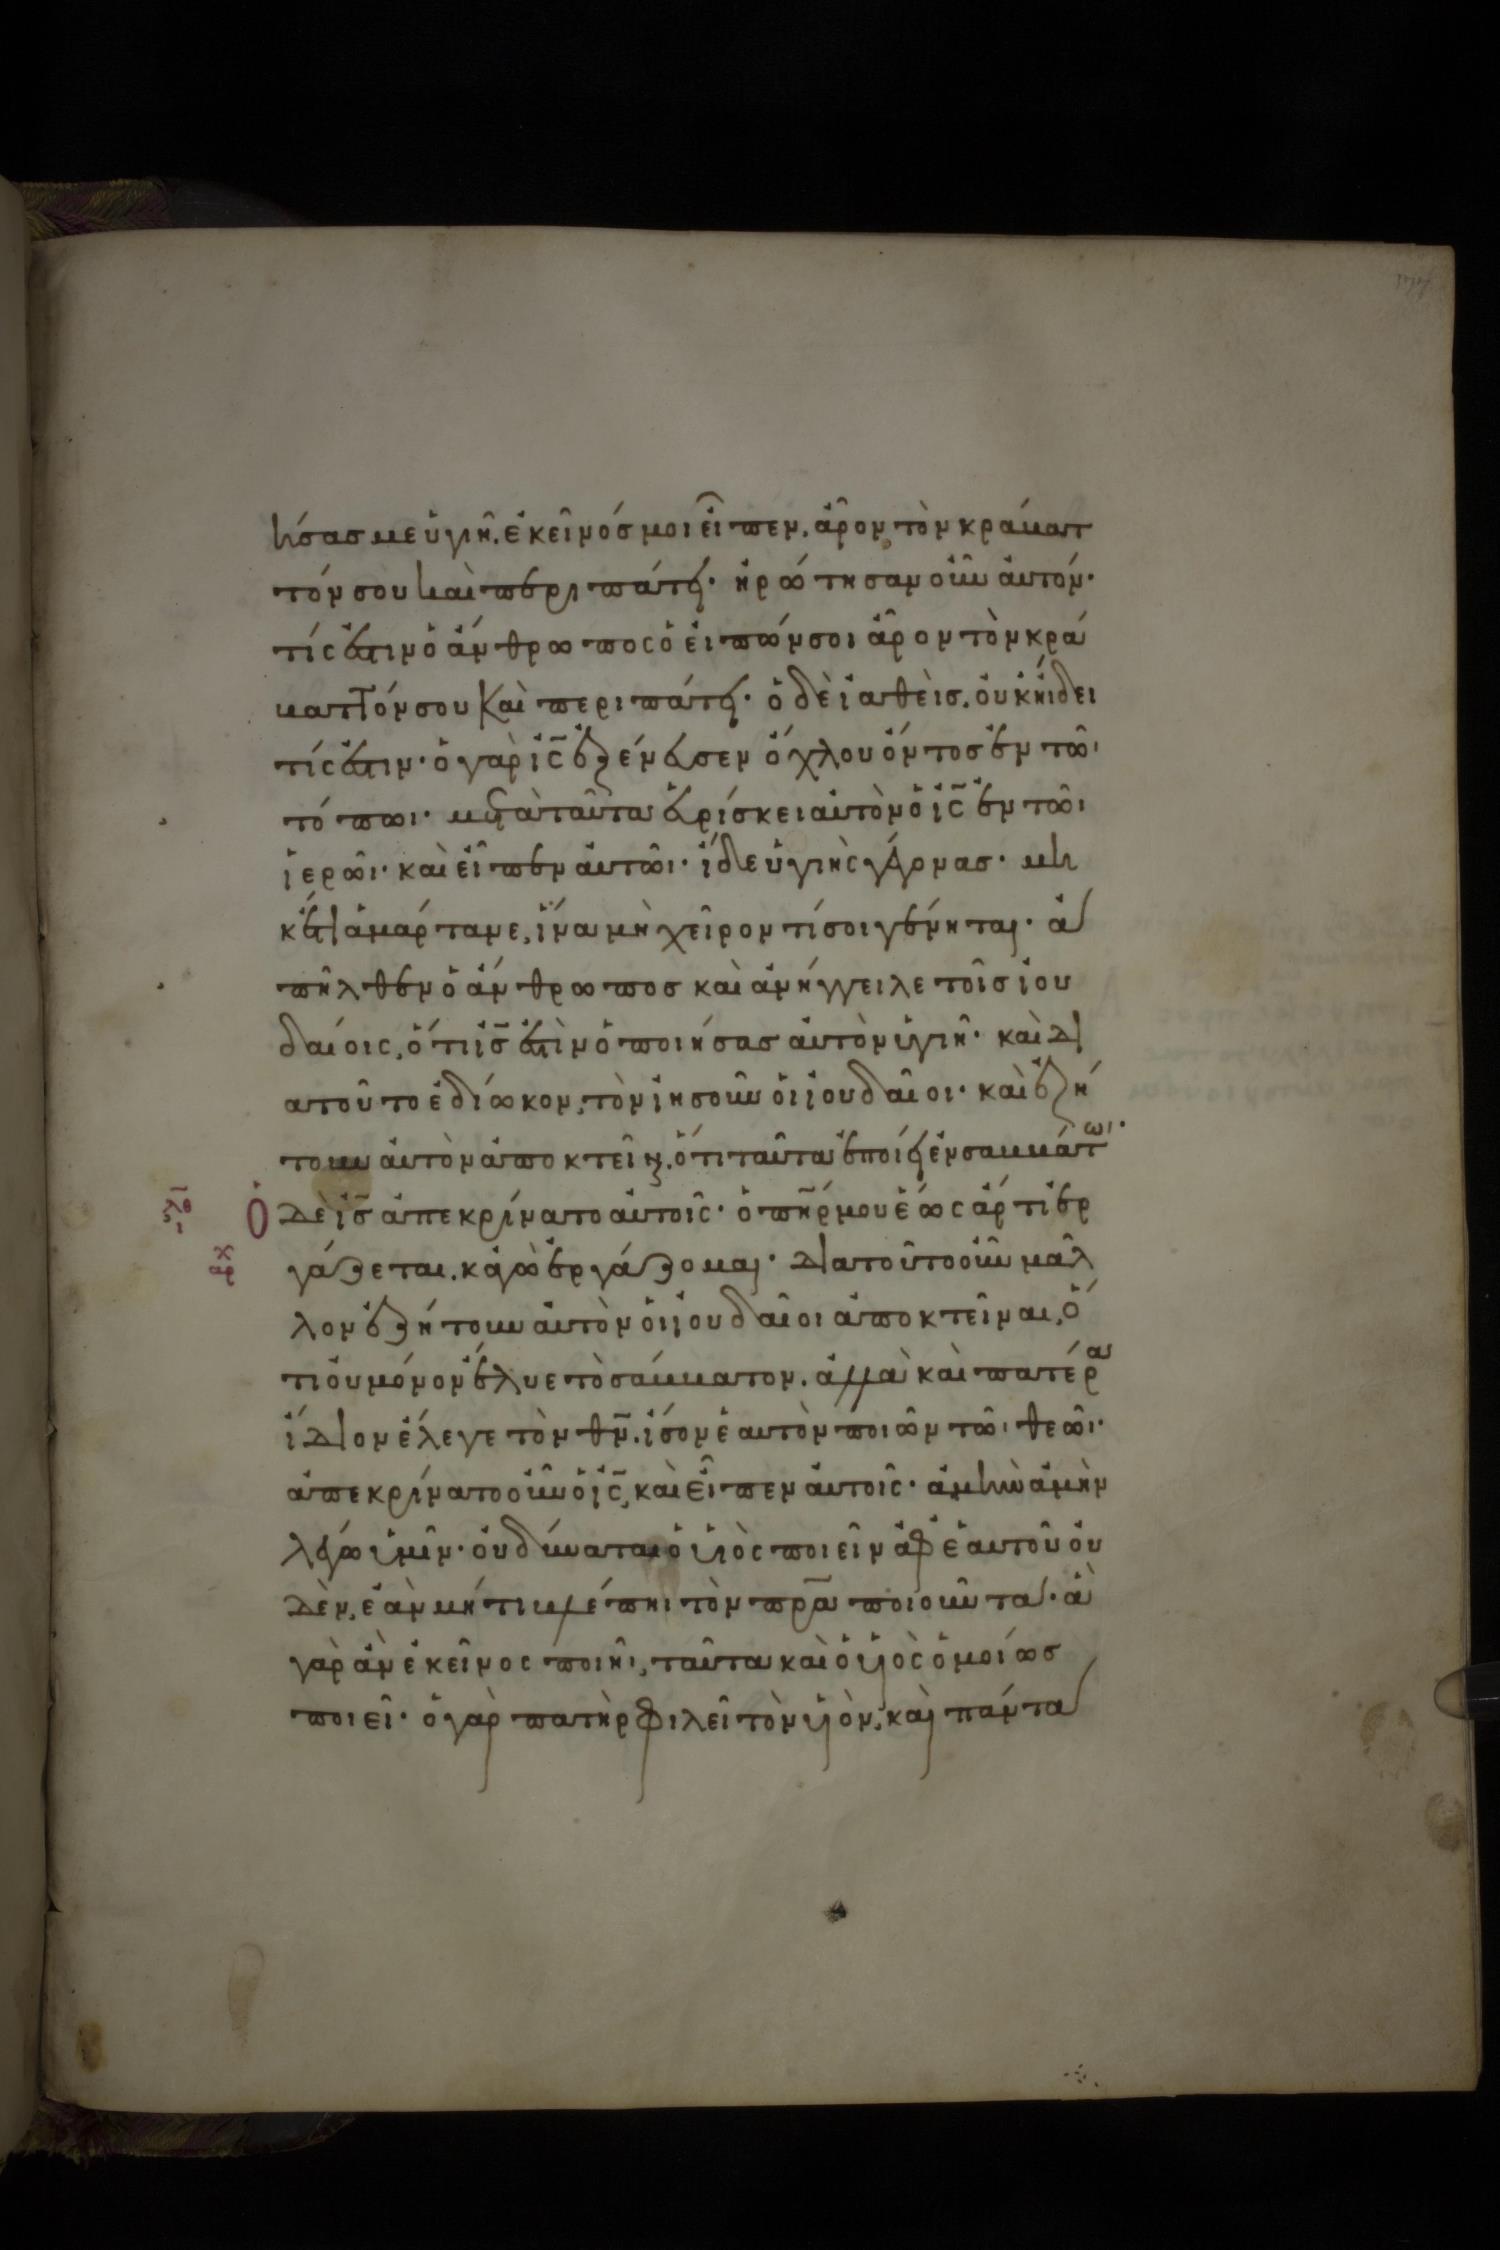 ήσας με ὑγιῆ. ἐκεῖνός μοι εἶπεν. ἆρον τὸν κράβατ
τόν σου καὶ περιπάτει· ἠρώτησαν οὖν αὐτόν·
τίς ἐστιν ὁ ἄνθρωπος ὁ εἰπών σοι ἆρον τὸν κρά
βαττόν σου καὶ περιπάτει· ὁ δὲ ἰαθεὶς. οὐκ ἤιδει
τίς ἐστιν· ὁ γὰρ ις̅ ἐξένευσεν ὄχλου ὄντος ἐν τῶι
τόπωι· μετὰ ταῦτα εὑρίσκει αὐτὸν ὁ ις̅ ἐν τῶι
ἱερῶι· καὶ εἶπεν αὐτῶι· ἴδε ὑγιὴς γέγονας· μη
κέτι ἁμάρτανε, ἵνα μὴ χεῖρον τί σοι γένηται· ἀ
πῆλθεν ὁ ἄνθρωπος καὶ ἀνήγγειλε τοῖς ἰου
δαίοις, ὅτι ις̅ ἐστὶν ὁ ποιήσας αὐτὸν ὑγιῆ· καὶ δι
ατοῦτο ἐδίωκον, τὸν ἰησοῦν οἱ ἰουδαῖοι· καὶ ἐζή
τουν αὐτὸν ἀποκτεῖναι. ὅτι ταῦτα ἐποίει ἐν σαββάτωι·
λθ ι Ὁ δὲ ις̅ ἀπεκρίνατο αὐτοῖς· ὁ πη̅ρ μου ἕως ἄρτι ἐρ
αρχ γάζεται. κἀγὼ ἐργάζομαι· διατοῦτο οὖν μᾶλ
λον ἐζήτουν αὐτὸν οἱ ἰουδαῖοι ἀποκτεῖναι, ὅ
τι οὐ μόνον ἔλυε τὸ σάββατον. ἀλλὰ καὶ πατέρα
ἴδιον ἔλεγε τὸν θν̅. ἴσον ἑαυτὸν ποιῶν τῶι θεῶι·
ἀπεκρίνατο οὖν ὁ ις̅, καὶ εἶπεν αὐτοῖς· ἀμὴν ἀμὴν
λέγω ὑμῖν· οὐ δύναται ὁ υἱὸς ποιεῖν ἀφ ἑαυτοῦ οὐ
δὲν, ἐὰν μή τι βλέπηι τὸν πρα̅ ποιοῦντα· ἃ
γὰρ ἂν ἐκεῖνος ποιῆι, ταῦτα καὶ ὁ υἱὸς ὁμοίως
ποιεῖ· ὁ γὰρ πατὴρ φιλεῖ τὸν υἱὸν, καὶ πάντα